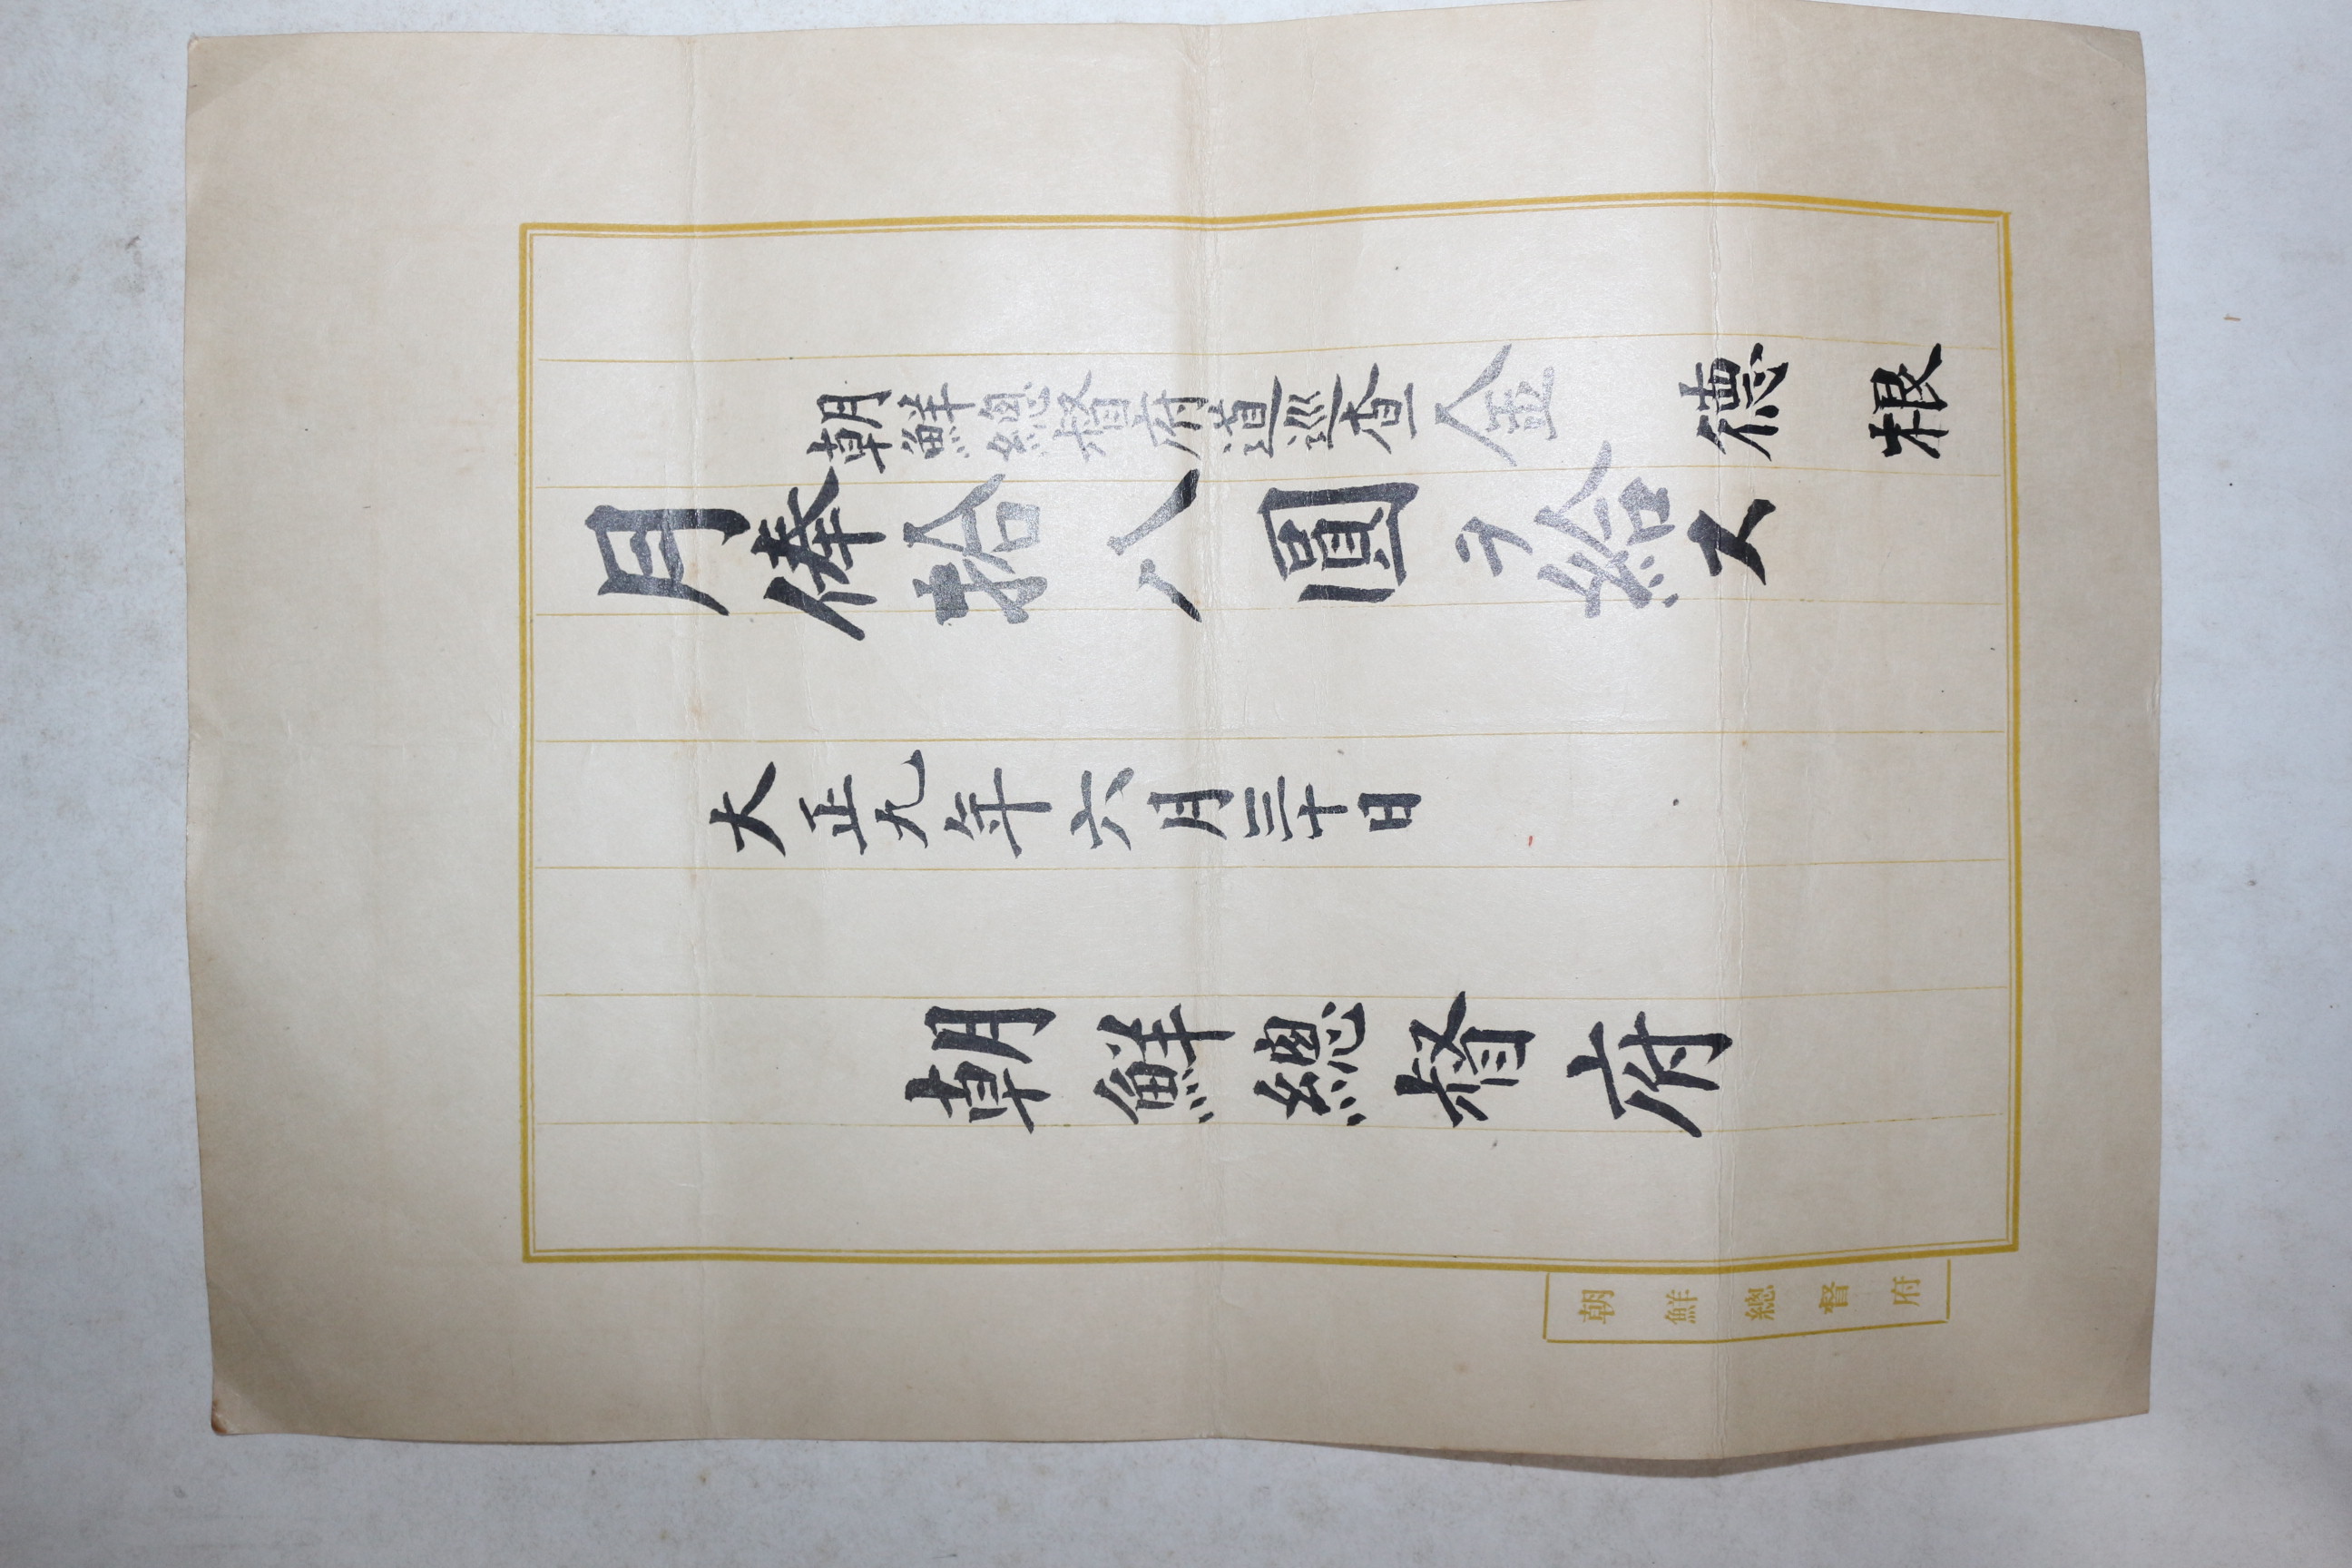 朝鮮總督府道巡査金德根
月俸拾八圓ヲ給ス
大正九年六月三十日
朝鮮總督府
朝鮮總督府